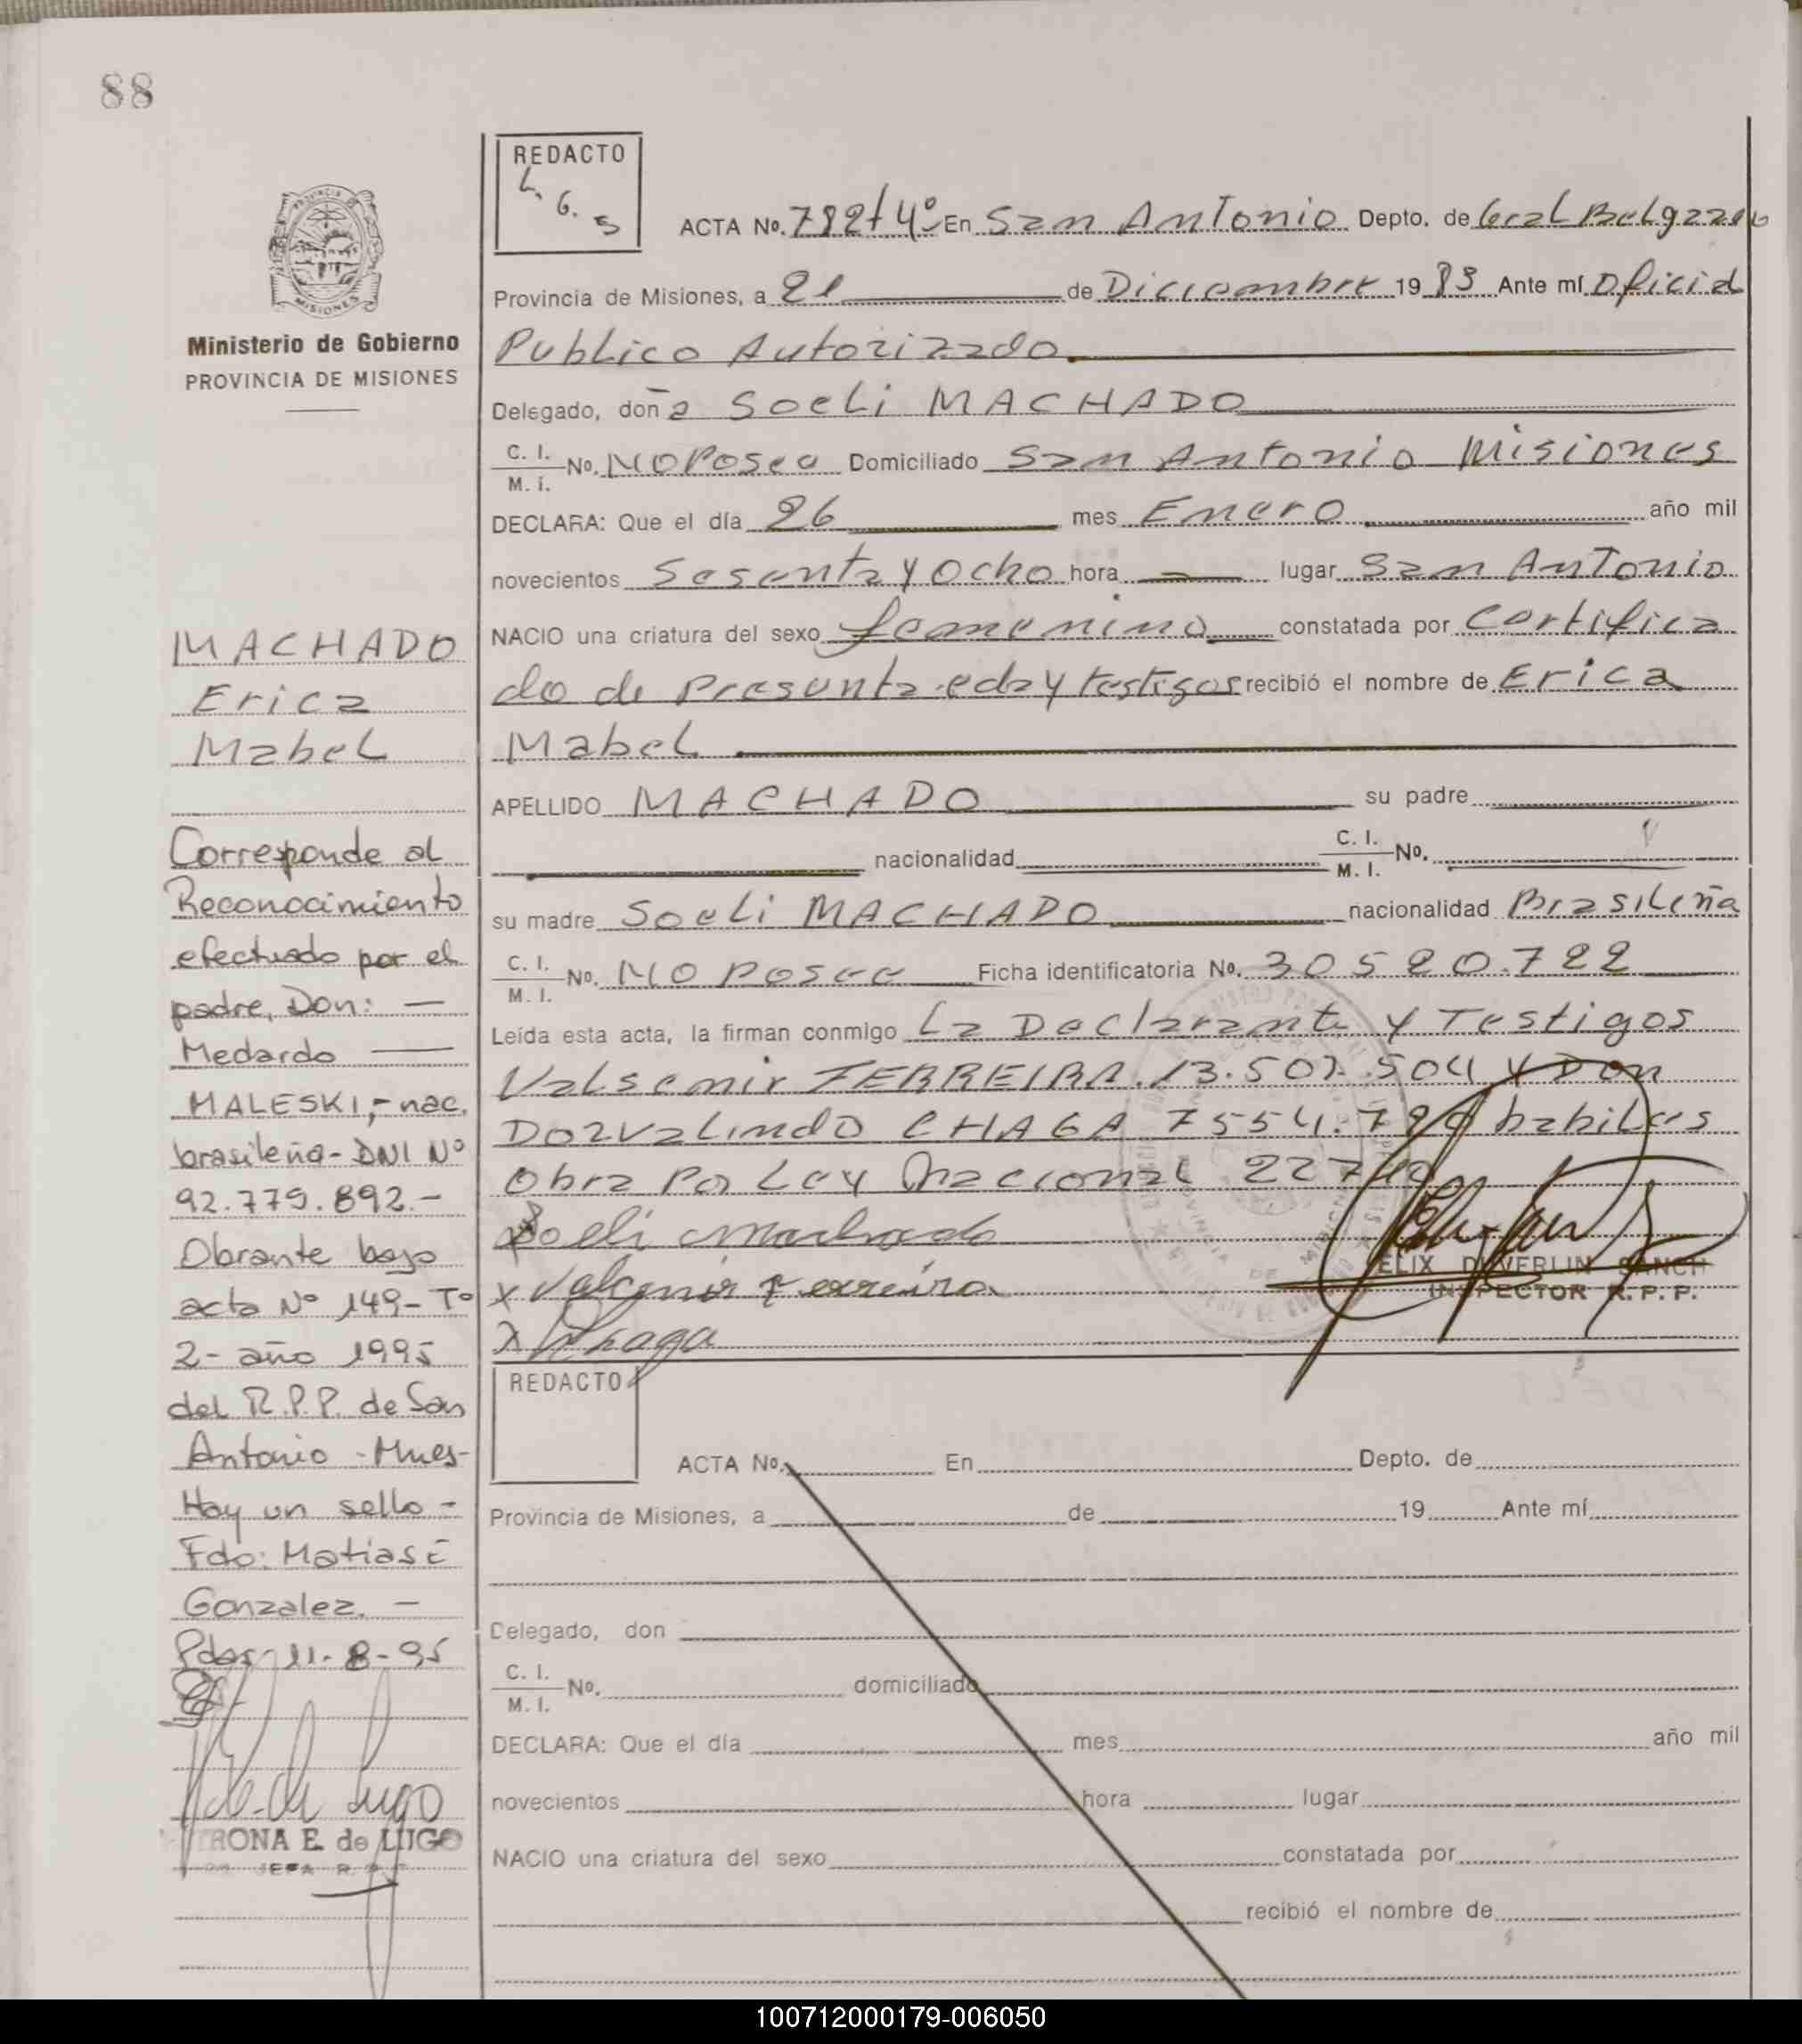 88
REDACTO
L. G. S
ACTA No. 782 t 4º En San Antonio Depto. de Gral Belgrano
Provincia de Misiones, a 21 de Diciembre 19 83 Ante mí Oficial
Publico Autorizado
Delegado, don a Soeli MACHADO
C. I. / M. I. No. No Poseo Domiciliado San Antonio Misiones
DECLARA: Que el día 26 mes Enero año mil
novecientos Sesenta y Ocho hora — lugar San Antonio
NACIO una criatura del sexo femenino constatada por Certifica
do de Presunta eda y testigos recibió el nombre de Erica
Mabel
APELLIDO MACHADO su padre
nacionalidad C. I. / M. I. No.
su madre Soeli MACHADO nacionalidad Brasileña
C. I. / M. I. No. No Posee Ficha identificatoria No. 30520.722
Leída esta acta, la firman conmigo La Declarante y Testigos
Valsemir FERREIRA 13.507.504 y Don
Dorvalindo CHAGA 7554. habiles
Obra Po Ley Nacional
Soeli Machado
x Valcemir Ferreira
x Chaga
FELIX DUVERLIN SANCH
INSPECTOR R. P. P.
PROVINCIA DE MISIONES
MISIONES
Ministerio de Gobierno
PROVINCIA DE MISIONES
MACHADO
Erica
Mabel
Corresponde al
Reconocimiento
efectuado por el
padre, Don: —
Medardo —
MALESKI,- nac.
brasileña- DNI Nº
92.779.892.-
Obrante bajo
acta Nº 149- Tº
2- año 1995
del R.P.P. de San
Antonio -Mnes-
Hay un sello -
Fdo: Matias E
Gonzalez. -
Pdas 11-8-95
de Lugo
TRONA E. de LUGO
JEFA R. P. P.
REDACTO
ACTA No. En Depto. de
Provincia de Misiones, a de 19 Ante mí
Delegado, don
C. I. / M. I. No. domiciliado
DECLARA: Que el día mes año mil
novecientos hora lugar
NACIO una criatura del sexo constatada por
recibió el nombre de
100712000179-006050